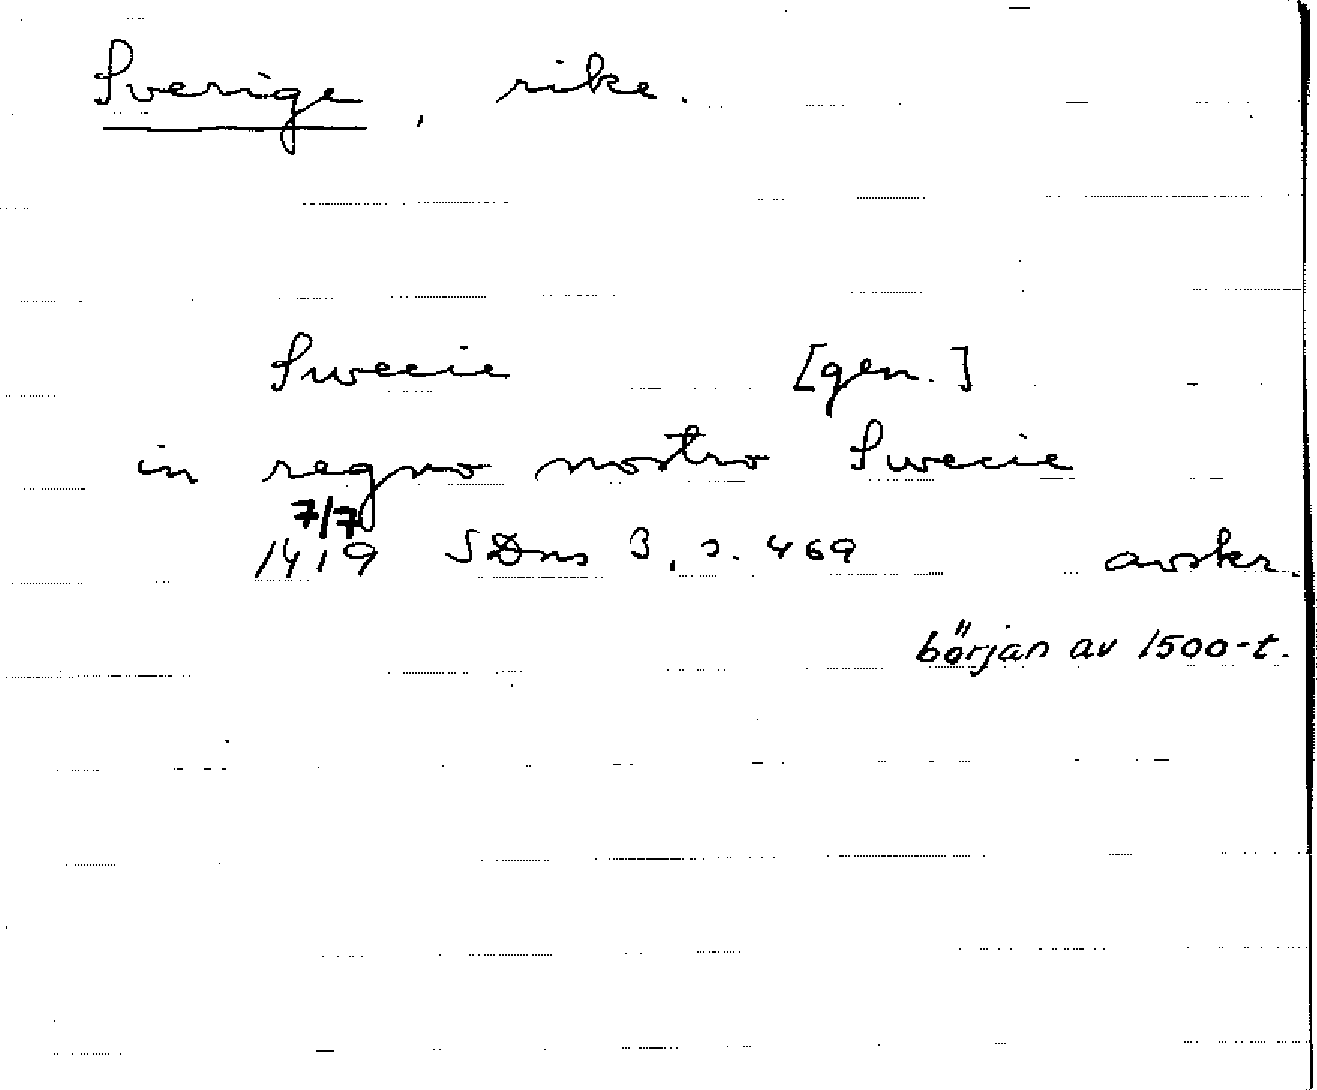 Sverige, rike.
Swecie [gen.]
in regno nostro Swecie
7/7
1419 SDns 3, s. 469 avskr.
början av 1500-t.